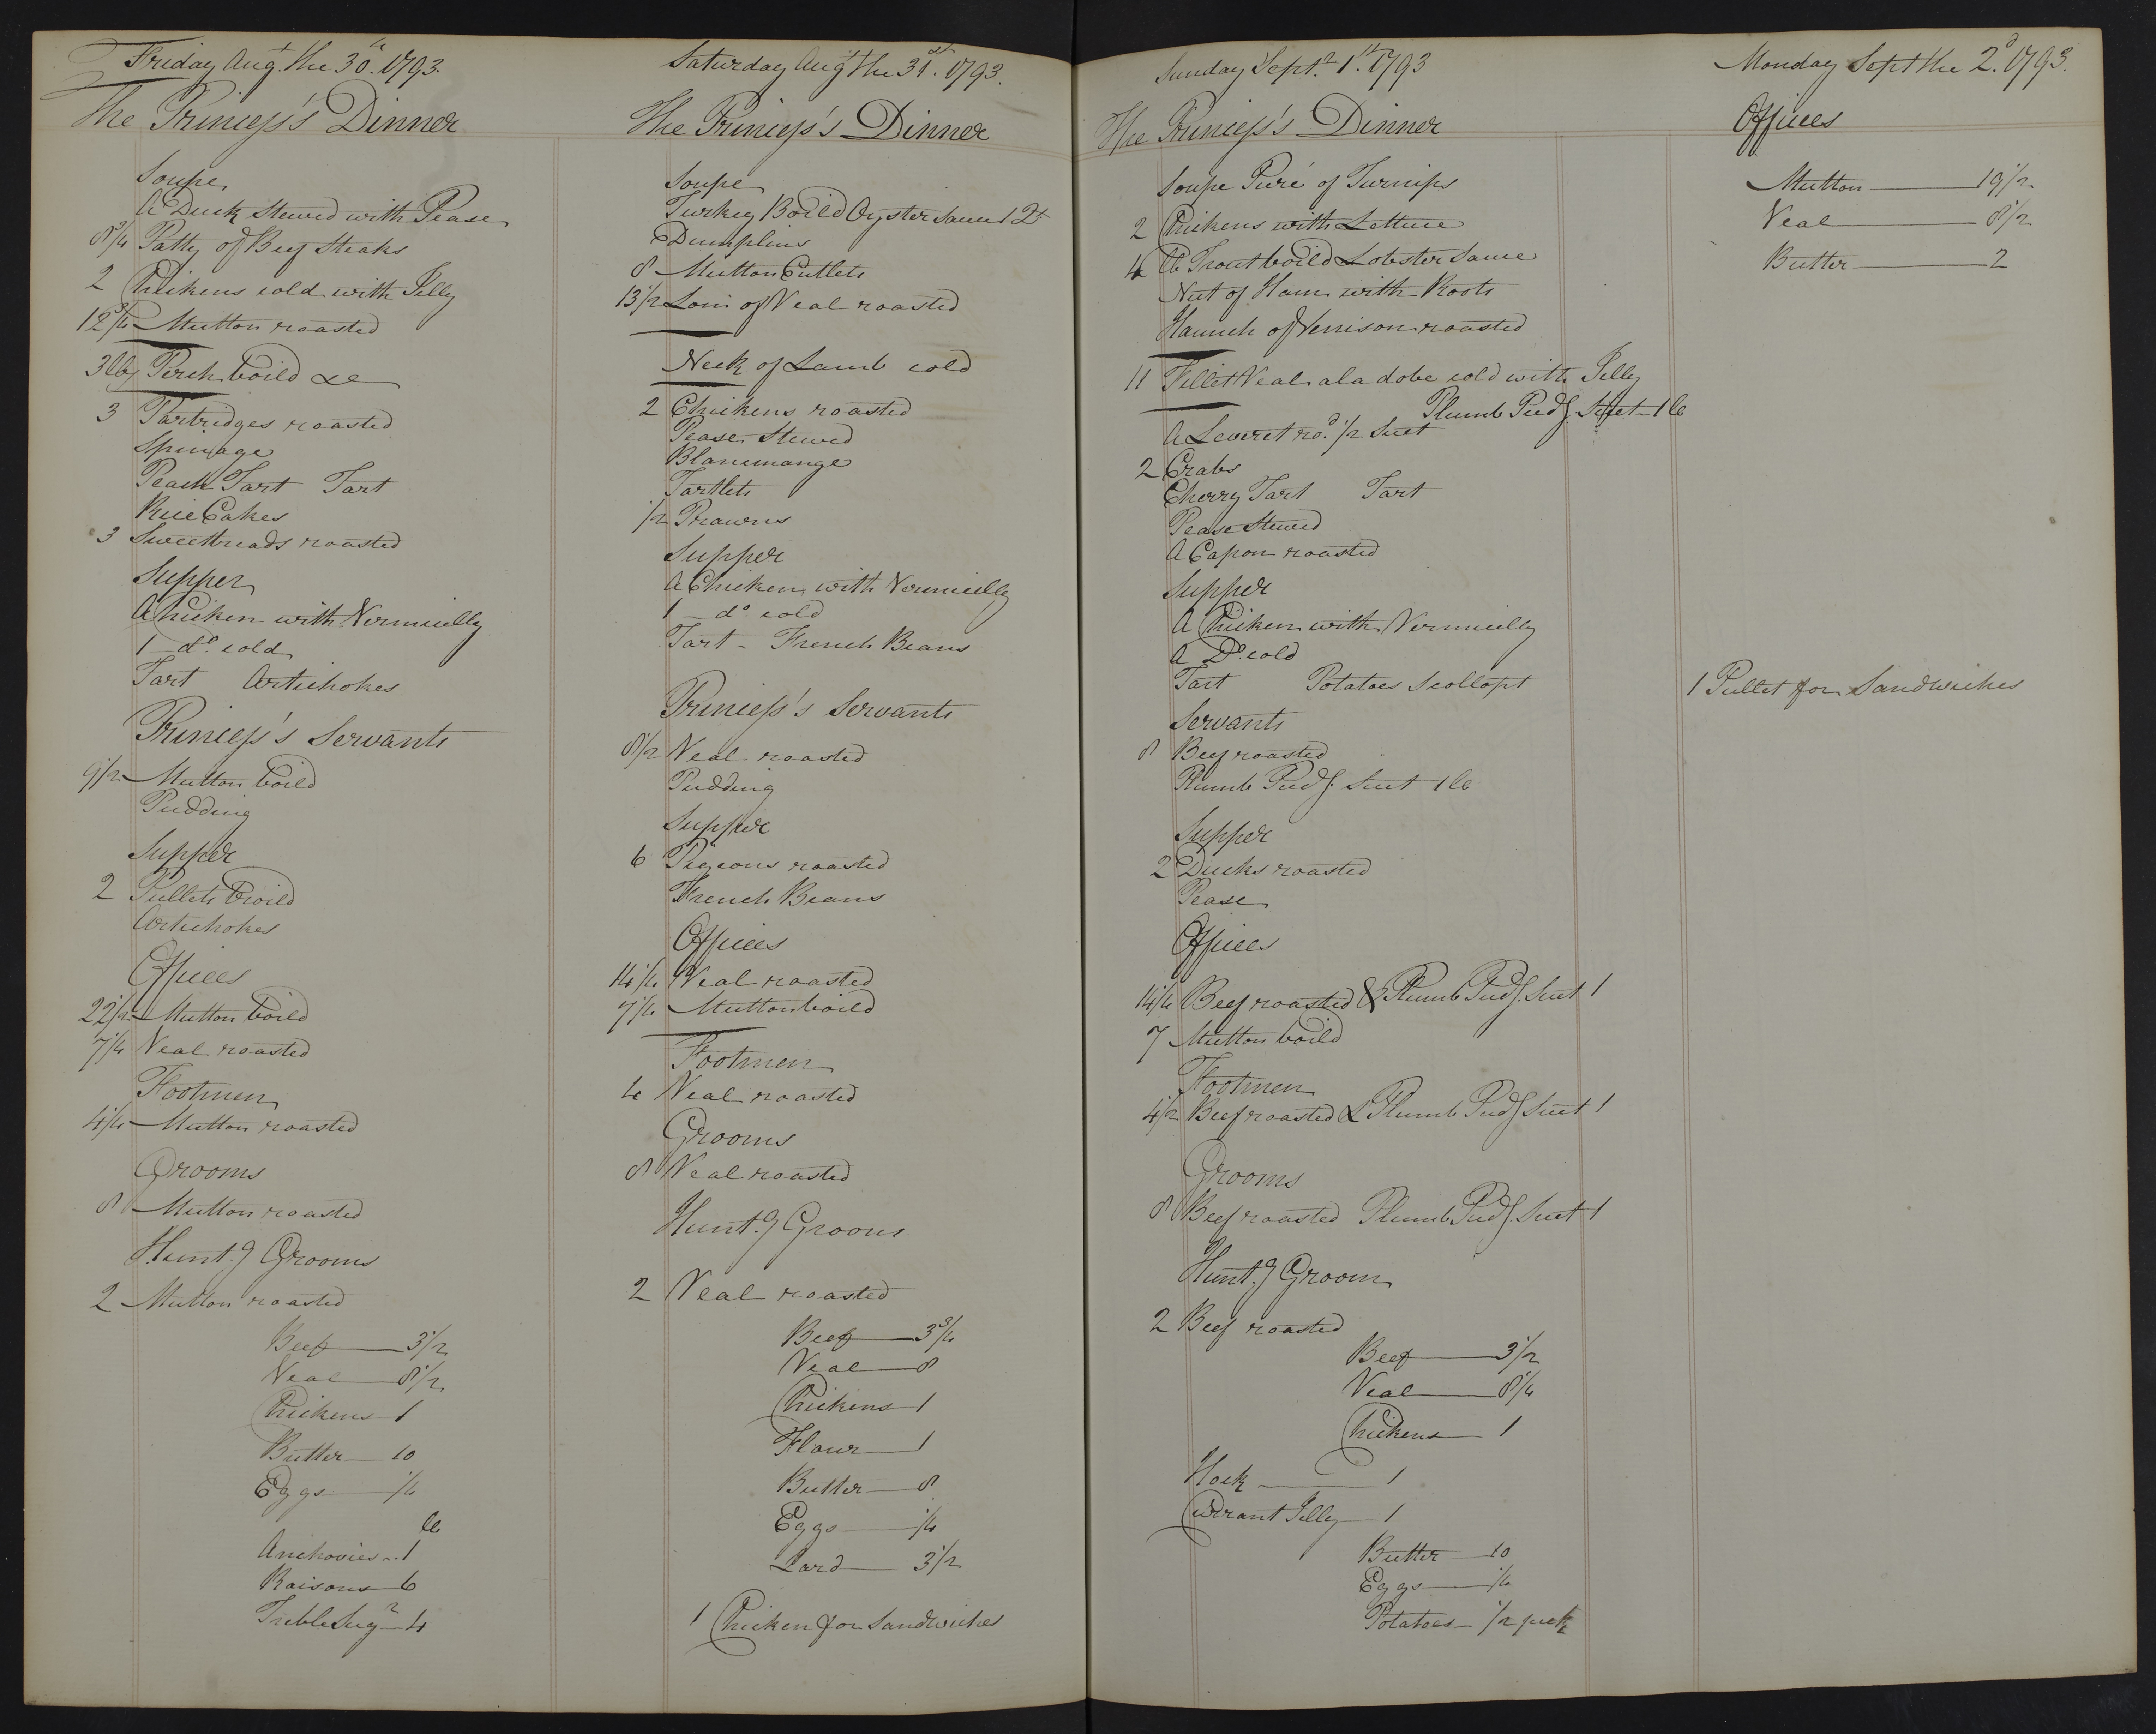 Friday Augt. the 30th. 1793.
The Princess's Dinner
Soupe
A Duck Stewed with Pease
8 3/4 Patty of Beef Steaks
2 Chickens cold with Jelly
12 3/4 Mutton roasted
3 lbs Perch boild &c
3 Partridges roasted
Spinage
Peach Tart Tart
Rice Cakes
3 Sweetbreads roasted
Supper
A Chicken with Vermicelly
1 do. cold
Tart Artichokes
Princess's Servants
9 1/2 Mutton boild
Pudding
Supper
2 Pullets broild
Artichokes
Offices
22 1/2 Mutton boild
7 1/4 Veal roasted
Footmen
4 1/4 Mutton roasted
Grooms
8 Mutton roasted
Hunt.g Grooms
2 Mutton roasted
Beef 3 1/2
Veal 8 1/2
Chickens 1
Butter 10
Eggs 1/4
lb
Anchovies 1
Raisons 6
Treble Sugr 4
Saturday Augt the 31st. 1793.
The Princess's Dinner
Soupe
Turkey Boild Oyster Sauce 1 Qt
Dumplins
8 Mutton Cutlets
13 1/2 Loin of Veal roasted
Neck of Lamb cold
2 Chickens roasted
Pease Stewed
Blancmange
Tartlets
1/2 Prawns
Supper
A Chicken with Vermicelly
1 do cold
Tart - French Beans
Princess's Servants
8 1/2 Veal roasted
Pudding
Supper
6 Pigeons roasted
French Beans
Offices
14 1/4 Veal roasted
7 1/4 Mutton boild
Footmen
4 Veal roasted
Grooms
8 Veal roasted
Hunt.g Grooms
2 Veal roasted
Beef 3 3/4
Veal 8
Chickens 1
Flour 1
Butter 8
Eggs 1/4
Lard 3 1/2
1 Chicken for Sandwiches
Sunday Sept.r 1st. 1793
The Princess's Dinner
Soupe Puré of Turnips
2 Chickens with Lettuce
4 lb Trout boild Lobster Sauce
Nut of Ham with Roots
Haunch of Vennison roasted
11 Fillet Veal a la dobe cold with Jelly
Plumb Pudg. Suet 1 lb
A Leveret rod. 1/2 Suet
2 Crabs
Cherry Tart Tart
Pease Stewed
A Capon roasted
Supper
A Chicken with Vermicelly
A Do. cold
Tart Potatoes Scollopt
Servants
8 Beef roasted
Plumb Pudg. Suet 1 lb
Supper
2 Ducks roasted
Pease
Offices
14 1/4 Beef roasted & Plumb Pudg. Suet 1
7 Mutton boild
Footmen
4 1/2 Beef roasted & Plumb Pudg Suet 1
Grooms
8 Beef roasted Plumb Pudg. Suet 1
Hunt.g Groom
2 Beef roasted
Beef 3 1/2
Veal 8 1/4
Chickens 1
Hock 1
Currant Jelly 1
Butter 10
Eggs 1/4
Potatoes 1/2 peck
Monday Sept the 2d. 1793.
Offices
Mutton 19 1/2
Veal 8 1/2
Butter 2
1 Pullet for Sandwiches